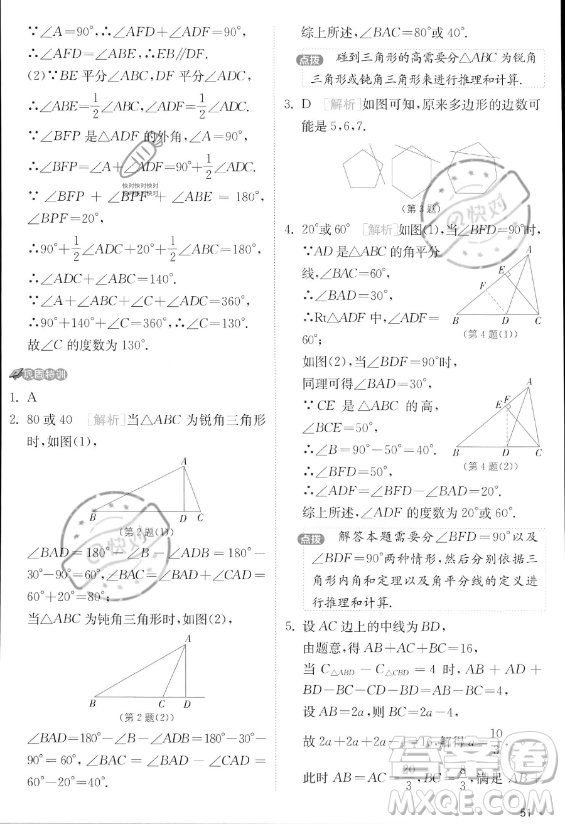 ∵∠A=90°,∴∠ADF+∠ADF=90°,
∴∠AEB=∠ADF,∴EB∥DF.
(2)∵BE平分∠ABC,DF平分∠ADC,
∴∠ABE=1/2∠ABC,∠ADF=1/2∠ADC.
∵∠BFP是△ADF的外角,∠A=90°,
∴∠BFP=∠A+∠ADF=90°+1/2∠ADC.
∵∠BFP+∠BPF+∠ABE=180°,
∠BPF=20°,
∴90°+1/2∠ADC+20°+1/2∠ABC=180°,
∴∠ADC+∠ABC=140°.
∵∠A+∠ABC+∠C+∠ADC=360°,
∴90°+140°+∠C=360°,∴∠C=130°.
故∠C的度数为130°.
巩固特训
1. A
2. 80或40 [解析]当△ABC为锐角三角形
时,如图(1),
A
B D C
(第2题(1))
∠BAD=180°-∠B-∠ADB=180°-
30°-90°=60°,∠BAC=∠BAD+∠CAD=
60°+20°=80°;
当△ABC为钝角三角形时,如图(2),
A
B C D
(第2题(2))
∠BAD=180°-∠B-∠ADB=180°-30°-
90°=60°,∠BAC=∠BAD-∠CAD=
60°-20°=40°.
综上所述,∠BAC=80°或40°.
点拨 碰到三角形的高需要分△ABC为锐角
三角形或钝角三角形来进行推理和计算.
3. D [解析]如图可知,原来多边形的边数可
能是5,6,7.
(第3题)
4. 20°或60° [解析]如图(1),当∠BFD=90°时,
∵AD是△ABC的角平分
线,∠BAC=60°,
∴∠BAD=30°.
∴Rt△ADF中,∠ADF=
60°;
如图(2),当∠BDF=90°时,
同理可得∠BAD=30°.
∵CE是△ABC的高,
∠BCE=50°,
∴∠B=90°-50°=40°.
∴∠BFD=50°.
A
E
F
B D C
(第4题(1))
A
B D C
(第4题(2))
∴∠ADF=∠BFD-∠BAD=20°.
综上所述,∠ADF的度数为20°或60°.
点拨 解答本题需要分∠BFD=90°以及
∠BDF=90°两种情形,然后分别依据三
角形内角和定理以及角平分线的定义进
行推理和计算.
5. 设AC边上的中线为BD,
由题意,得AB+AC+BC=16,
当C△ABD-C△CBD=4时,AB+AD+
BD-BC-CD-BD=AB-BC=4.
设AB=2a,则BC=2a-4,
此时AB=AC=20/3,BC=8/3,满足AB+
51
快对
答案圈
MXQE.COM